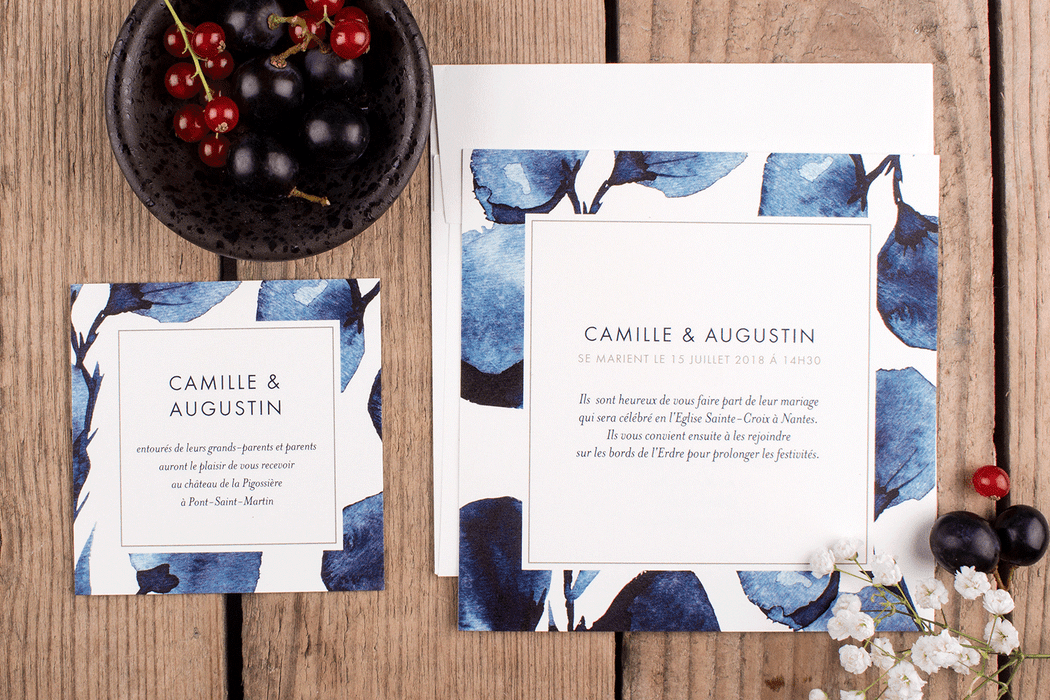 CAMILLE &
AUGUSTIN
entourés de leurs grands-parents et parents
auront le plaisir de vous recevoir
au château de la Pigossière
à Pont-Saint-Martin
CAMILLE & AUGUSTIN
SE MARIENT LE 15 JUILLET 2018 À 14H30
Ils sont heureux de vous faire part de leur mariage
qui sera célébré en l'Eglise Sainte-Croix à Nantes.
Ils vous convient ensuite à les rejoindre
sur les bords de l'Erdre pour prolonger les festivités.